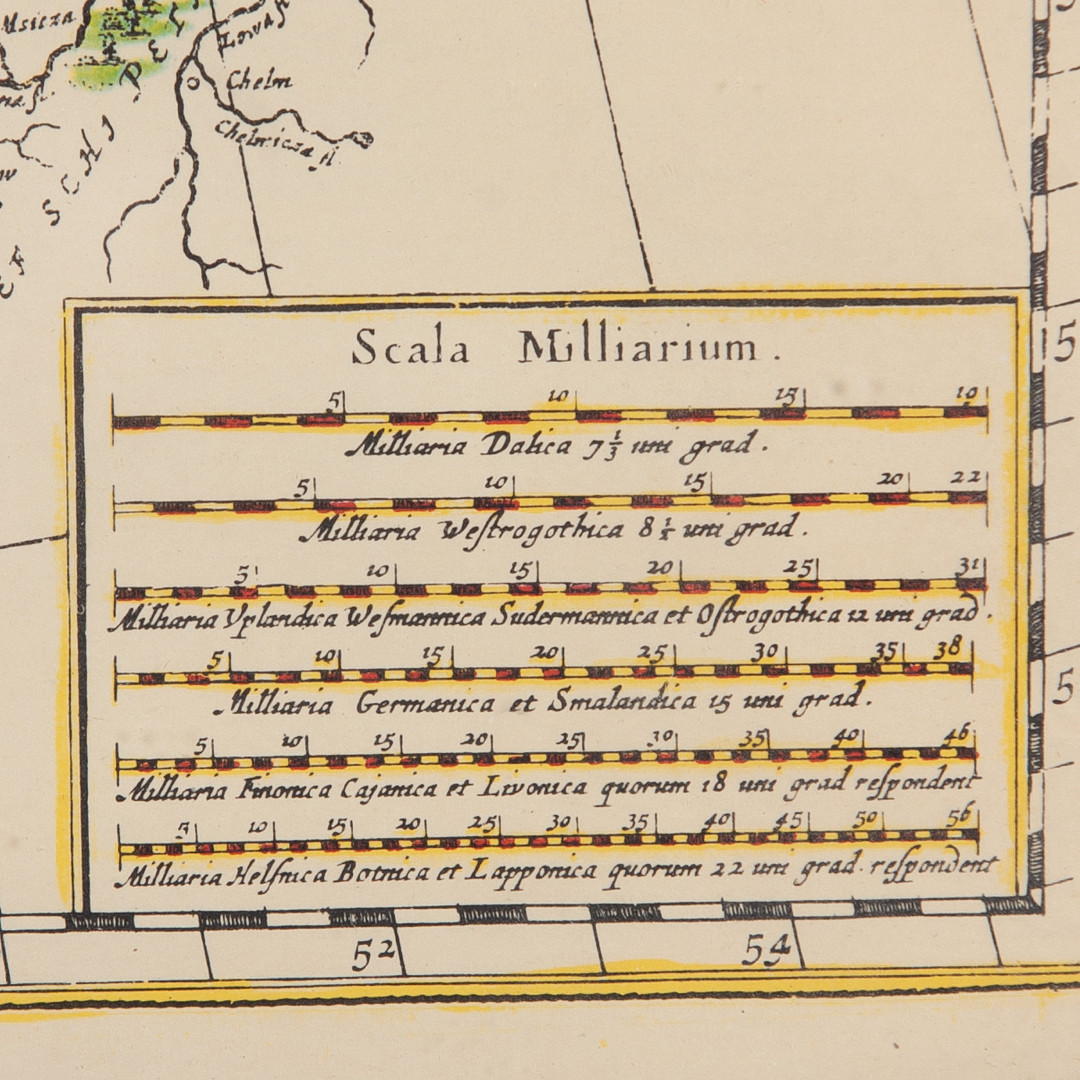 Msicza
Lovast
PE
Chelm
Chelmicza fl.
SCHI
Scala Milliarium.
5 10 15 19
Milliaria Dalica 7 1/3 uni grad.
5 10 15 20 22
Milliaria Weſtrogothica 8 1/2 uni grad.
5 10 15 20 25 31
Milliaria Vplandica Weſmannica Sudermannica et Oſtrogothica 12 uni grad.
5 10 15 20 25 30 35 38
Milliaria Germanica et Smalandica 15 uni grad.
5 10 15 20 25 30 35 40 46
Milliaria Finonica Cajanica et Livonica quorum 18 uni grad reſpondent
5 10 15 20 25 30 35 40 45 50 56
Milliaria Helſnica Botnica et Lapponica quorum 22 uni grad. reſpondent
5
5
52 54